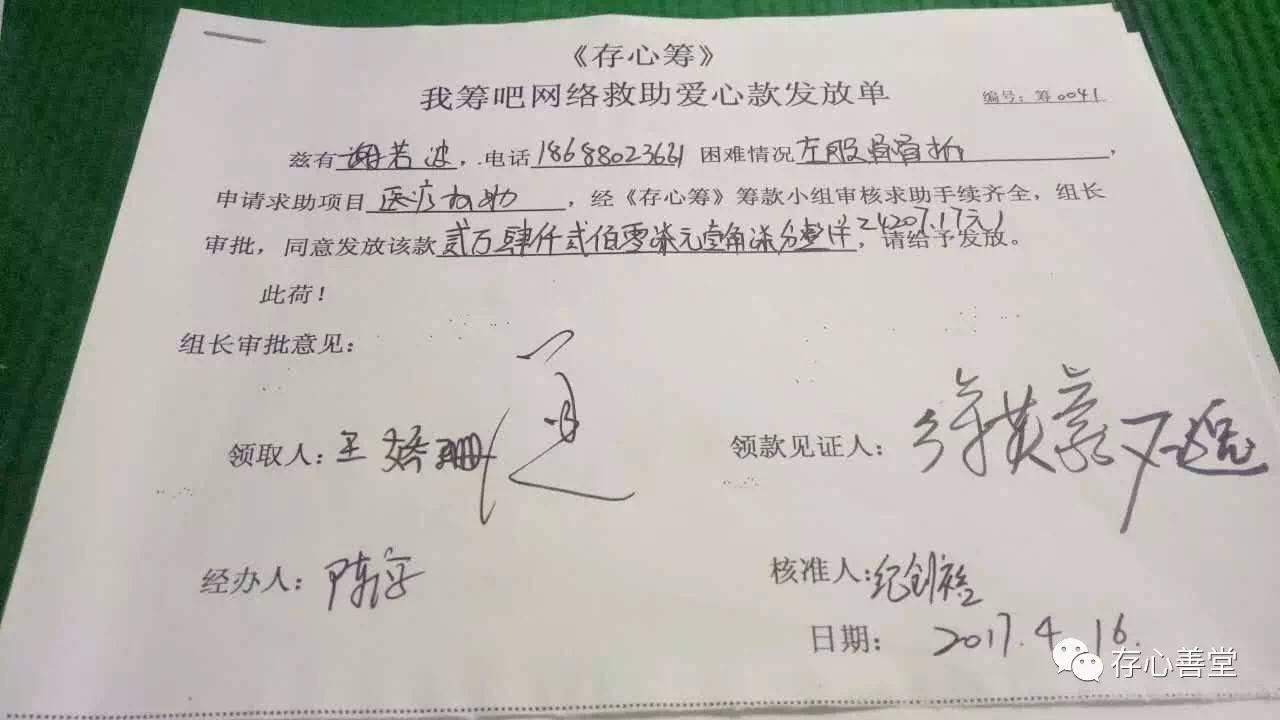 《存心筹》
我筹吧网络救助爱心款发放单
编号：筹0041
兹有谢若波，电话18688023661困难情况左股骨骨折，
申请求助项目医疗救助，经《存心筹》筹款小组审核求助手续齐全，组长
审批，同意发放该款贰万肆仟贰佰零柒元壹角柒分整(￥24207.17元)，请给予发放。
此荷！
组长审批意见：
领取人：王婷珊 领款见证人：
经办人：陈 核准人：纪创
日期：2017.4.16.
存心善堂